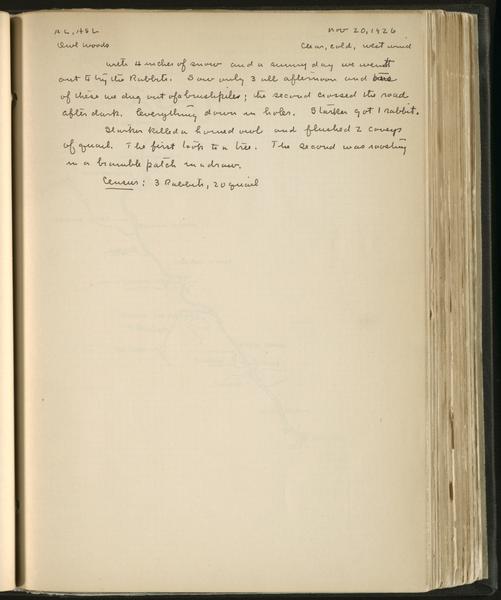 AL, ASL Nov 20, 1926
Owl Woods Clear, cold, west wind
With 4 inches of snow and a sunny day we went
out to try the Rabbits. Saw only 3 all afternoon and
of these we dug out of a brushpile; the second crossed the road
after dark. Everything down in holes. Starker got 1 rabbit.
Starker killed a horned owl and flushed 2 coveys
of quail. The first took to a tree. The second was roosting
in a bramble patch in a draw.
Census: 3 Rabbits, 20 quail